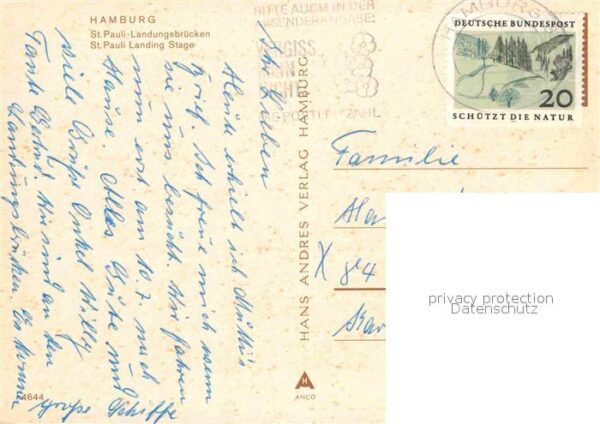 HAMBURG
St. Pauli-Landungsbrücken
St. Pauli Landing Stage
Ihr Lieben
Heute erhielt ich Mutti's
Brief. Ich freue mich wenn
sie uns besucht. Wir fahren
nun erst am 10.7 nach
Hause. Alles Gute und
viele Grüße Onkel Willy
Tante Betti. Wir sind an den
Landungsbrücken. Es kommen
große Schiffe
4644
BITTE AUCH IN DER
ABSENDERANGABE:
VERGISS
MEIN
NICHT
DIE POSTLEITZAHL
HAMBURG
DEUTSCHE BUNDESPOST
20
SCHÜTZT DIE NATUR
HANS ANDRES VERLAG HAMBURG
H
ANCO
Familie
privacy protection
Datenschutz